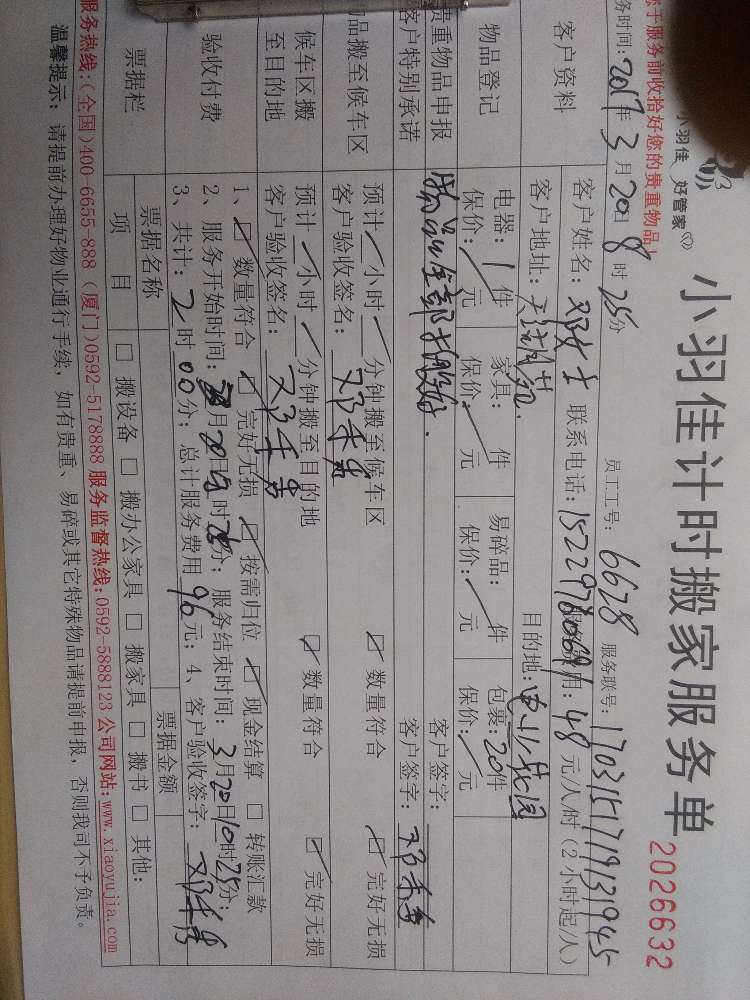 小羽佳 好管家
小羽佳计时搬家服务单
2026632
于服务前收拾好您的贵重物品!
务时间:2017年3月20日8时25分
员工工号:6628
服务联号:1703151719131945
客户资料
客户姓名:邓女士 联系电话:15229780691 用:48元/人/时(2小时起/人)
客户地址: 目的地:
物品登记
电器:1件 家具: 件 易碎品: 件 包裹:20件
保价: 元 保价: 元 保价: 元 保价: 元
贵重物品申报
客户特别承诺
物品全部
客户签字:
客户签字:
品搬至候车区
预计 小时 分钟搬至候车区 ☑ 数量符合 ☑ 完好无损
客户验收签名:
候车区搬
至目的地
预计 小时 分钟搬至目的地 ☑ 数量符合 ☑ 完好无损
客户验收签名:
验收付费
1、☑ 数量符合 ☑ 完好无损 ☑ 按需归位 ☑ 现金结算 □ 转账汇款
2、服务开始时间: 月20日 时 分; 服务结束时间:3月20日10时25分;
3、共计:2时00分; 总计服务费用96元; 4、客户验收签字:
票据栏
票据名称 票据金额
项目 □ 搬设备 □ 搬办公家具 □ 搬家具 □ 搬书 □ 其他:
服务热线:(全国)400-6655-888 (厦门)0592-5178888 服务监督热线:0592-5888123 公司网站:www.xiaoyujia.com
温馨提示:请提前办理好物业通行手续,如有贵重、易碎或其它特殊物品请提前申报,否则我司不予负责。